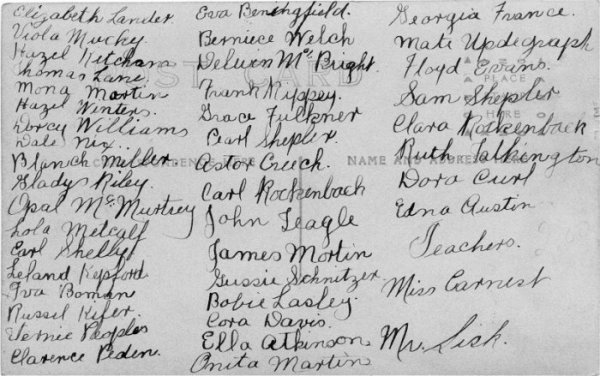 Elizabeth Lander
Viola Mucky
Hazel Ketcham
Thomas Lane
Mona Martin
Hazel Winters.
Darcy Williams
Dale Nix.
Blanch Miller
Gladys Riley.
Opal McMurtrey
Lola Metcalf
Earl Shelly
Leland Kepford
Iva Boman
Russil Kifer
Vernie Peoples
Clarence Peden.
Eva Beningfield.
Berniece Welch
Delwin McBught.
Frank Kippey.
Grace Fulkner
Pearl Shepler
Astor Creech.
Carl Rockenbach
John Teagle
James Mortin
Gussie Schnitzer
Bobie Lasley.
Cora Davis.
Ella Atkinson
Anita Martin
Georgia France.
Mate Updegraph
Floyd Evans.
Sam Shepler
Clara Rockenbach
Ruth Talkington
Dora Curl
Edna Austin
Teachers.
Miss Earnest
Mr. Sisk.
POST CARD
PLACE
HERE
NAME AND ADDRESS HERE